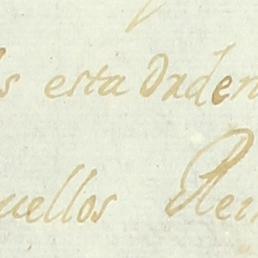 s esta Orden
uellos Rei